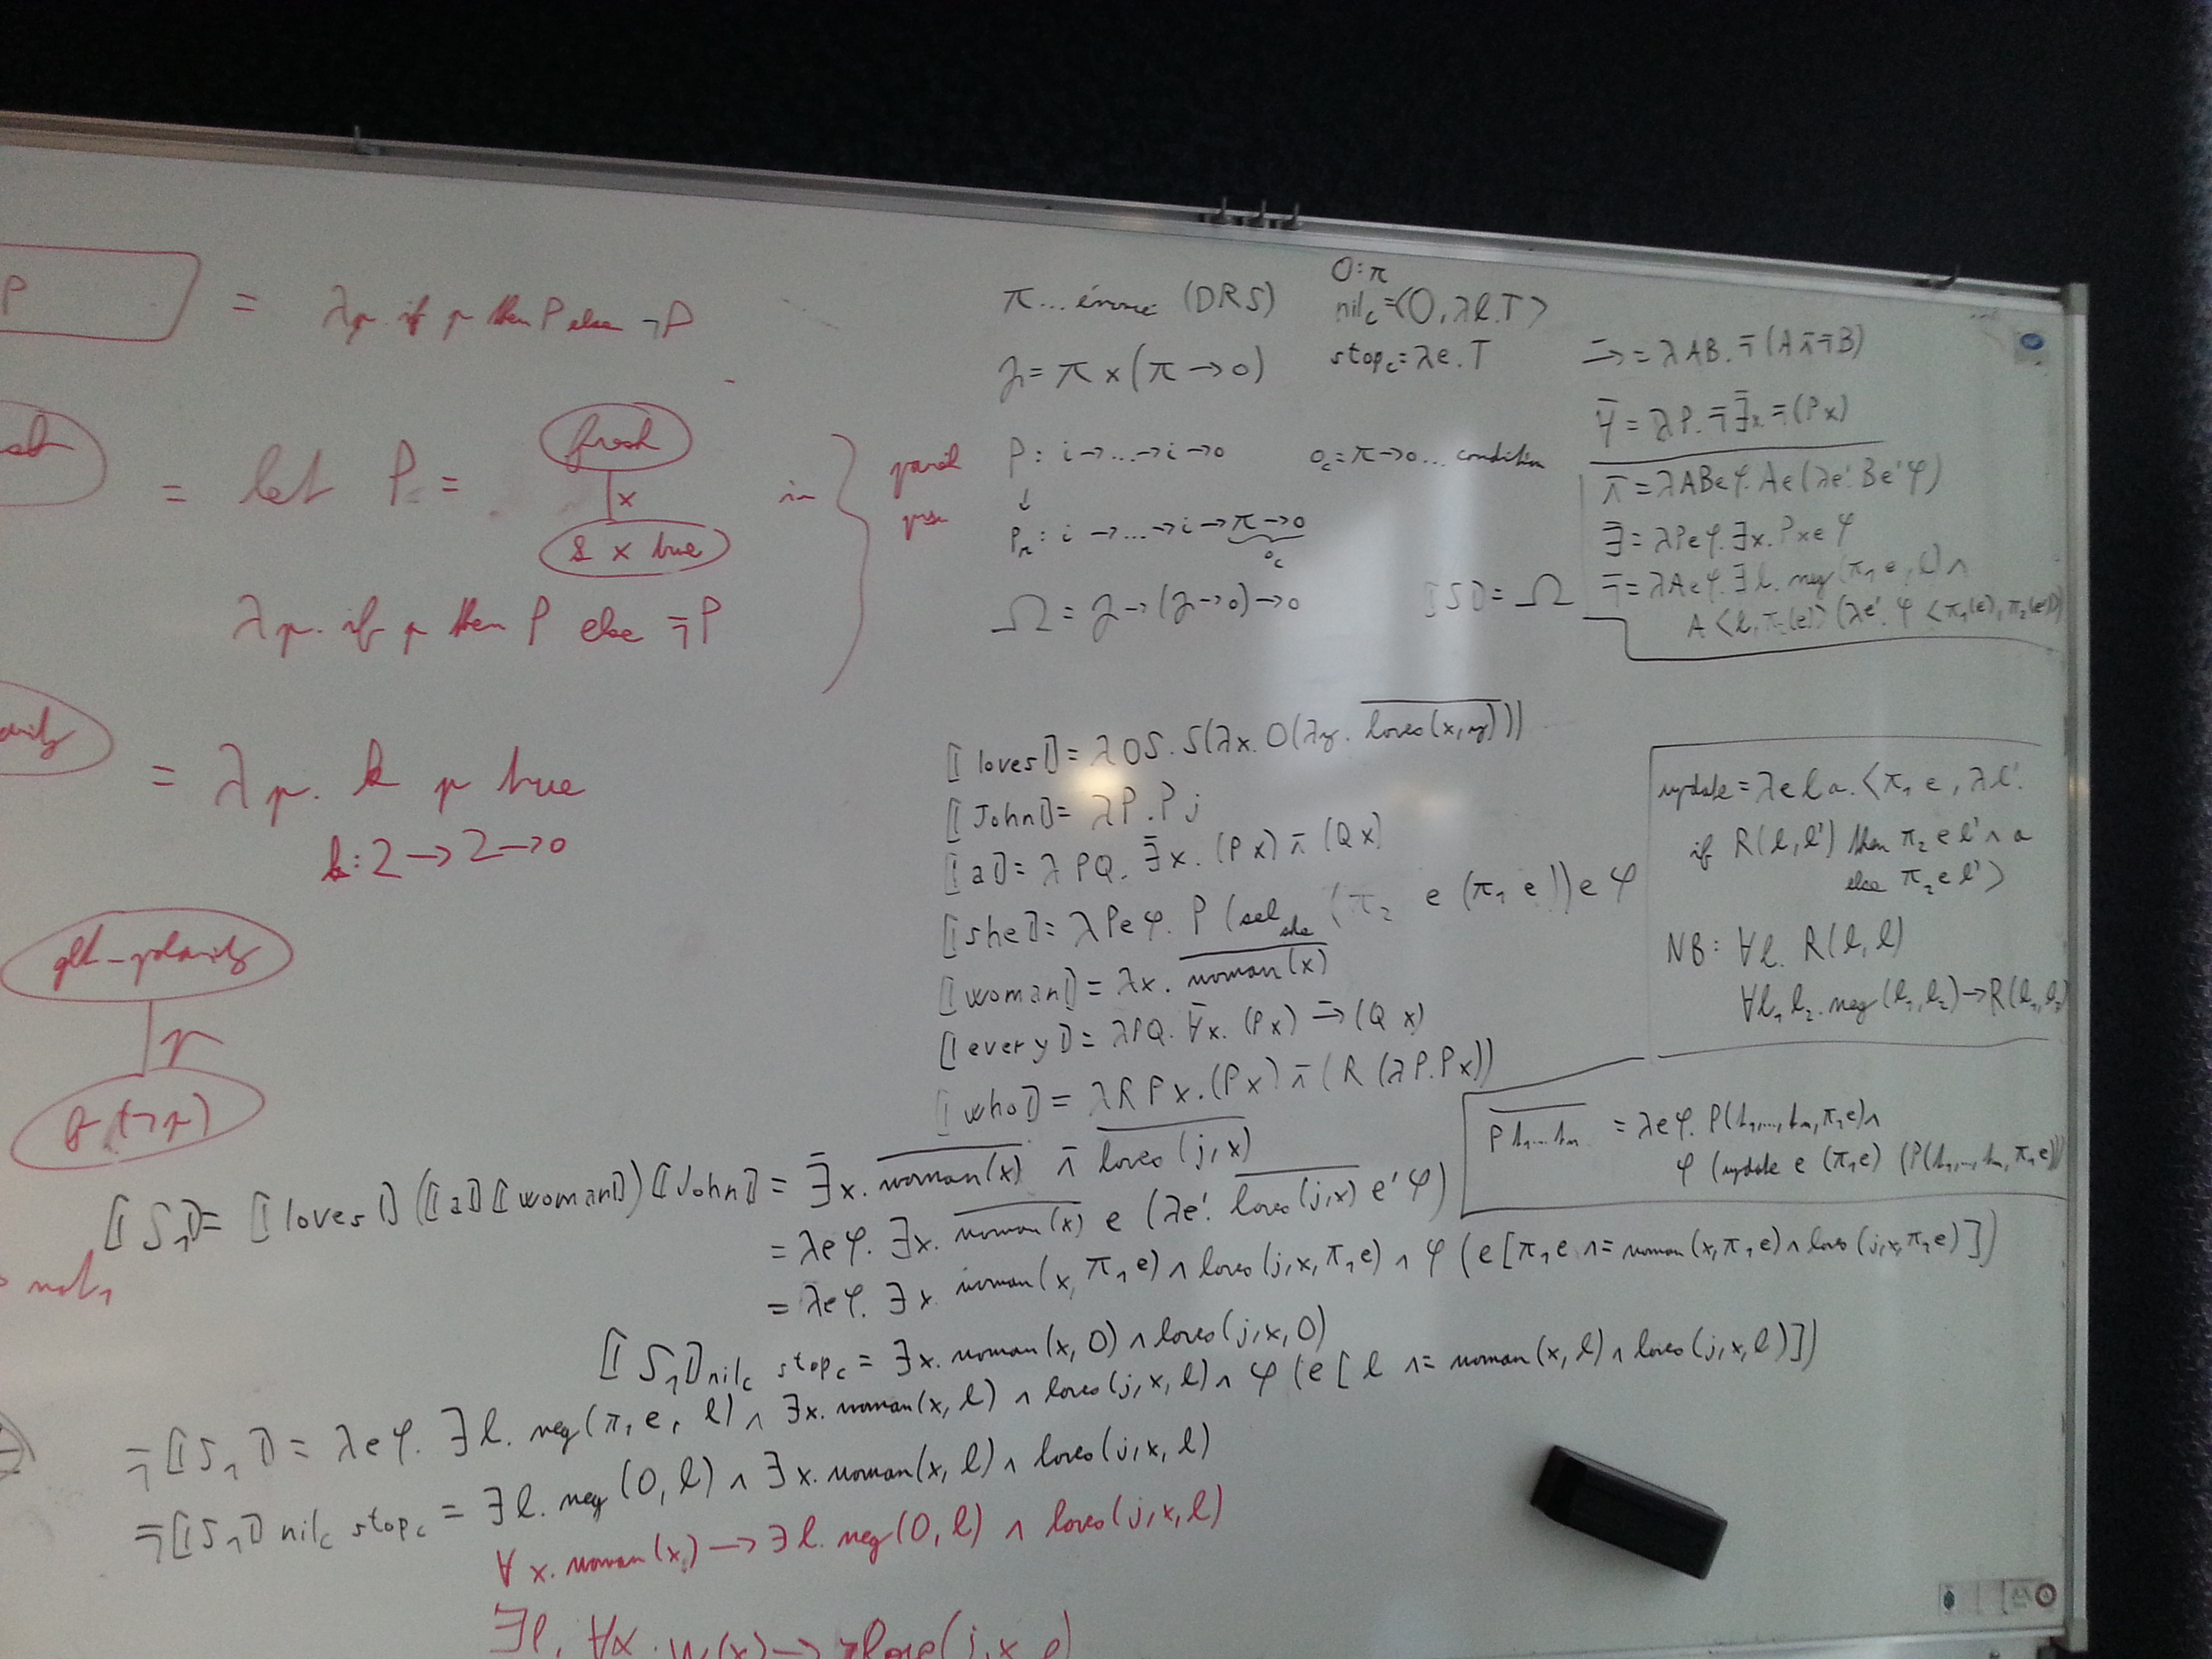 P = λp. if p then P else ¬P
= let P = fresh in
x
& x true
λp. if p then P else ¬̄P
= λp. k p true
k: 2 → 2 → o
get-polarity
p
(¬p)
not,
π ... (DRS)
γ = π × (π → o)
O : π
nil_c = ⟨O, λl.T⟩
stop_c = λe.T
P : i → ... → i → o
o_c = π → o ... condition
↓
P_π : i → ... → i → π → o
o_c
Ω = γ → (γ → o) → o
⟦S⟧ = Ω
→̄ = λAB. ¬̄(A ∧̄ ¬̄B)
∀̄ = λP. ¬̄∃̄x. ¬̄(Px)
∧̄ = λABeφ. Ae(λe'. Be'φ)
∃̄ = λPeφ. ∃x. Pxeφ
¬̄ = λAeφ. ∃l. neg(π₁e, l) ∧
A⟨l, π₂(e)⟩(λe'. φ⟨π₁(e), π₂(e')⟩)
⟦loves⟧ = λOS. S(λx. O(λy. \overline{loves(x,y)}))
⟦John⟧ = λP. P j
⟦a⟧ = λPQ. ∃̄x. (Px) ∧̄ (Qx)
⟦she⟧ = λPeφ. P(sel_she (π₂ e (π₁ e)) e φ
⟦woman⟧ = λx. \overline{woman(x)}
⟦every⟧ = λPQ. ∀̄x. (Px) →̄ (Q x)
⟦who⟧ = λRPx. (Px) ∧̄ (R (λP. Px))
update = λela. ⟨π₁ e, λl'.
if R(l,l') then π₂ e l' ∧ a
else π₂ e l'⟩
NB: ∀l. R(l,l)
∀l₁ l₂. neg(l₁,l₂) → R(l₁,l₂)
\overline{P t₁...tₙ} = λeφ. P(t₁,...,tₙ,π₁e) ∧
φ (update e (π₁e) (P(t₁,...,tₙ,π₁e)))
⟦S₁⟧ = ⟦loves⟧(⟦a⟧⟦woman⟧)⟦John⟧ = ∃̄x. \overline{woman(x)} ∧̄ \overline{loves(j,x)}
= λeφ. ∃x. \overline{woman(x)} e (λe'. \overline{loves(j,x)} e'φ)
= λeφ. ∃x woman(x, π₁e) ∧ loves(j,x,π₁e) ∧ φ(e[π₁e ∧= woman(x,π₁e) ∧ loves(j,x,π₁e)])
⟦S₁⟧ nil_c stop_c = ∃x. woman(x,O) ∧ loves(j,x,O)
¬̄⟦S₁⟧ = λeφ. ∃l. neg(π₁e, l) ∧ ∃x. woman(x,l) ∧ loves(j,x,l) ∧ φ(e[l ∧= woman(x,l) ∧ loves(j,x,l)])
¬̄⟦S₁⟧ nil_c stop_c = ∃l. neg(O,l) ∧ ∃x. woman(x,l) ∧ loves(j,x,l)
∀x. woman(x) → ∃l. neg(O,l) ∧ loves(j,x,l)
∃l. ∀x. w(x) → love(j,x,l)